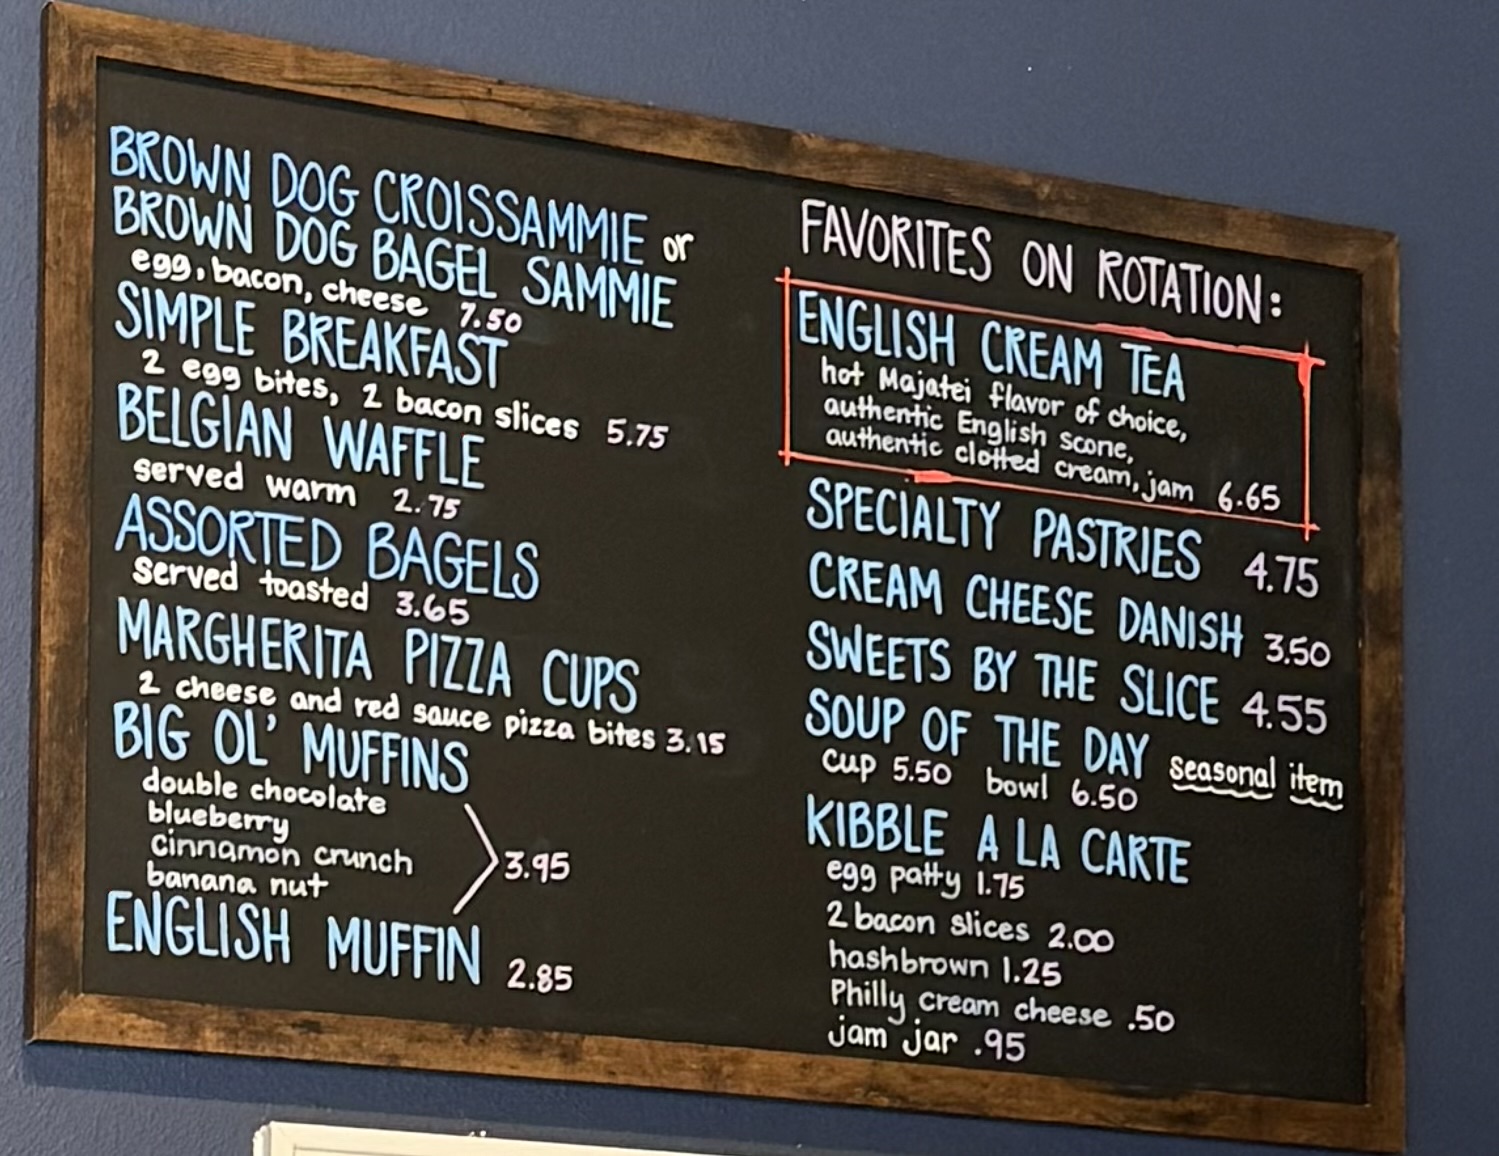 BROWN DOG CROISSAMMIE or
BROWN DOG BAGEL SAMMIE
egg, bacon, cheese 7.50
SIMPLE BREAKFAST
2 egg bites, 2 bacon slices 5.75
BELGIAN WAFFLE
served warm 2.75
ASSORTED BAGELS
served toasted 3.65
MARGHERITA PIZZA CUPS
2 cheese and red sauce pizza bites 3.15
BIG OL' MUFFINS
double chocolate
blueberry
cinnamon crunch
banana nut
3.95
ENGLISH MUFFIN 2.85
FAVORITES ON ROTATION:
ENGLISH CREAM TEA
hot Majatei flavor of choice,
authentic English scone,
authentic clotted cream, jam 6.65
SPECIALTY PASTRIES 4.75
CREAM CHEESE DANISH 3.50
SWEETS BY THE SLICE 4.55
SOUP OF THE DAY seasonal item
cup 5.50 bowl 6.50
KIBBLE A LA CARTE
egg patty 1.75
2 bacon slices 2.00
hashbrown 1.25
Philly cream cheese .50
jam jar .95